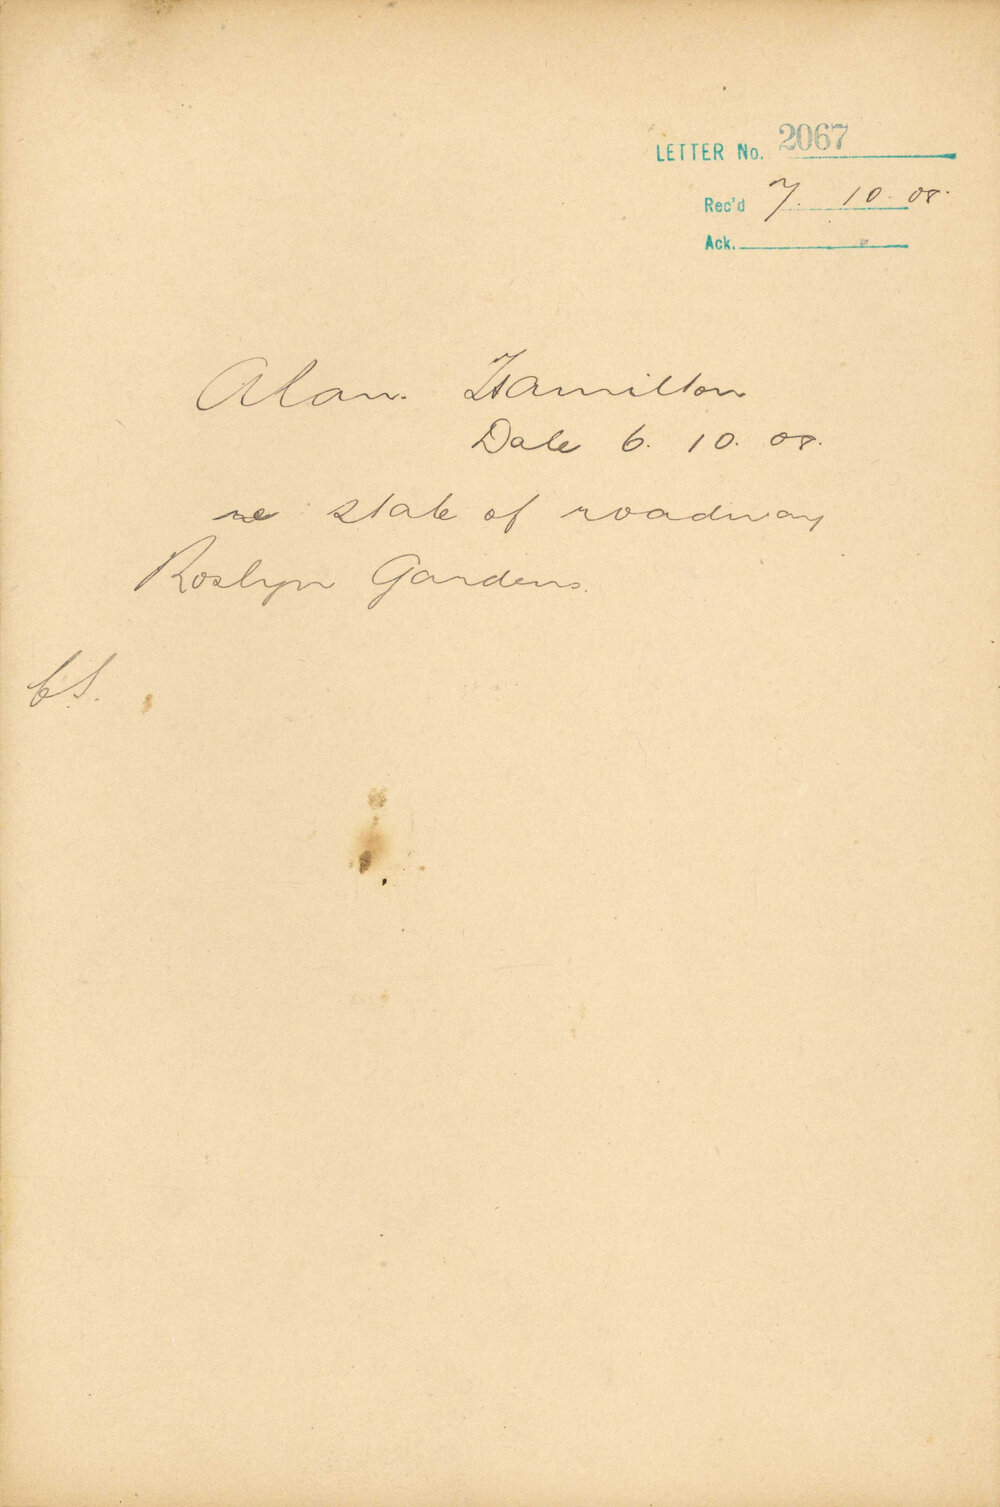 LETTER No. 2067
Rec'd 7. 10. 08.
Ack.
Alan. Hamilton
Date 6. 10. 08.
re state of roadway
Roslyn Gardens.
CS.